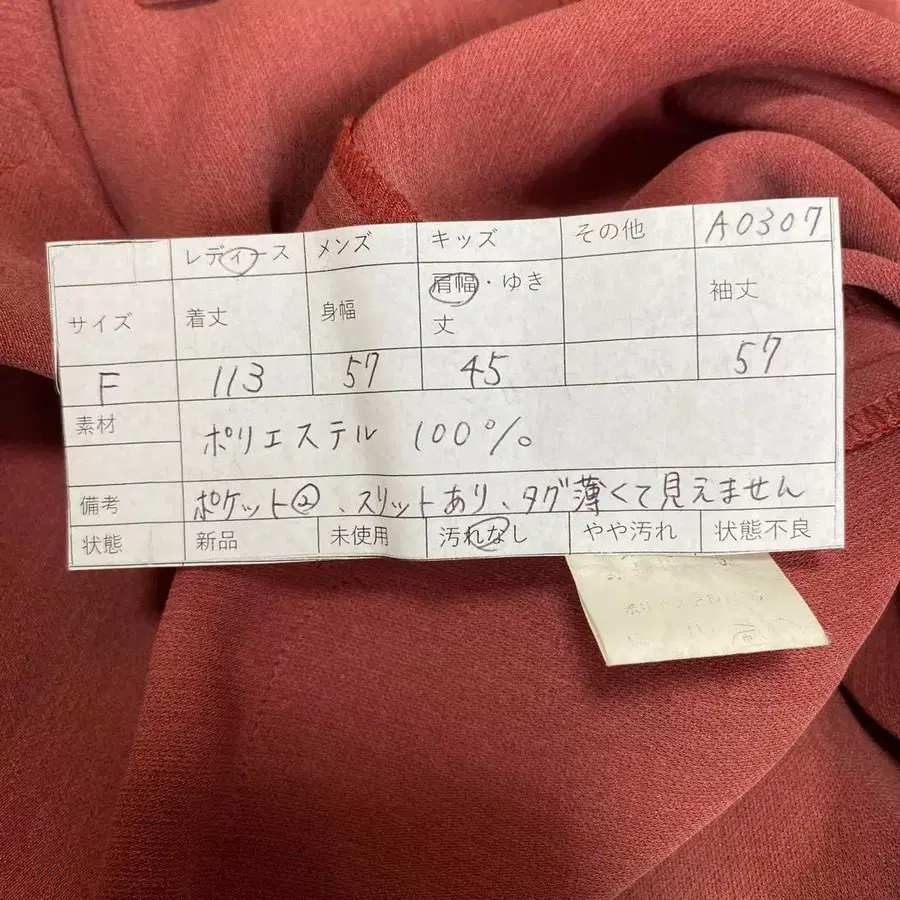 レディース メンズ キッズ その他 A0307
サイズ 着丈 身幅 肩幅・ゆき丈 袖丈
F 113 57 45 57
素材 ポリエステル 100%
備考 ポケット②、スリットあり、タグ薄くて見えません
状態 新品 未使用 汚れなし やや汚れ 状態不良